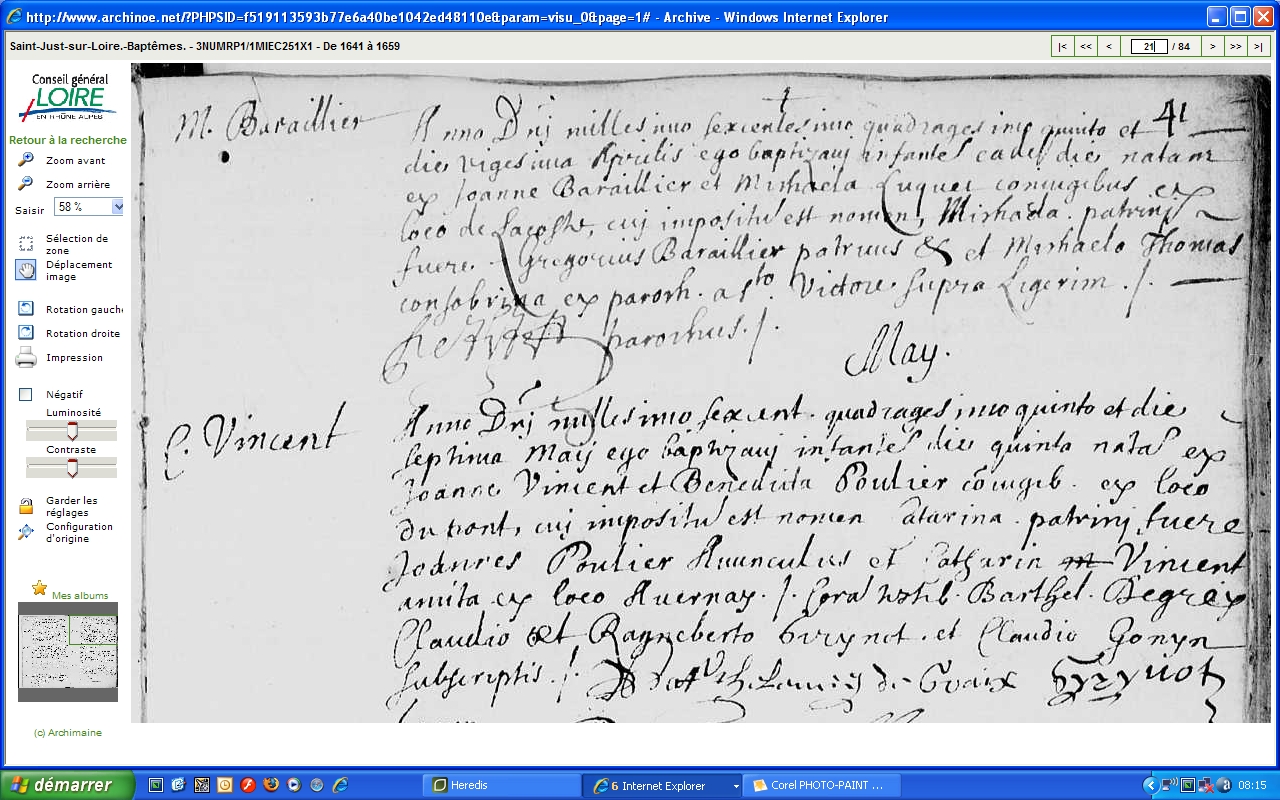 http://www.archinoe.net/?PHPSID=f519113593b77e6a40be1042ed48110e&param=visu_0&page=1# - Archive - Windows Internet Explorer
Saint-Just-sur-Loire.-Baptêmes. - 3NUMRP1/1MIEC251X1 - De 1641 à 1659
|< << < 21 / 84 > >> >|
Conseil général
LOIRE
EN RHÔNE ALPES
Retour à la recherche
Zoom avant
Zoom arrière
Saisir 58 %
Sélection de
zone
Déplacement
image
Rotation gauche
Rotation droite
Impression
Négatif
Luminosité
Contraste
Garder les
réglages
Configuration
d'origine
Mes albums
(c) Archimaine
41
M. Baraillier
Anno Dnj millesimo sexcentesimo quadragesimo quinto et
die vigesima Aprilis ego baptizavj infante eadem die natam
ex Joanne Baraillier et Michaela Luquet conjugibus ex
loco de Lacoste, cuj impositu est nomen, Michaela. patrinj
fuere. Gregorius Baraillier patruus et Michaela Thomas
consobrina ex paroch. a sto Victore supra Ligerim ./.
parochus ./.
May.
C. Vincent
Anno Dnj millesimo sexcent. quadragesimo quinto et die
septima Maij ego baptizavj infante die quinta nata ex
Joanne Vincent et Benedicta Poulier cōiugib. ex loco
du pont, cuj impositu est nomen Catarina. patrinj fuere
Joannes Poulier Avunculus et Catharin Vincent
amita ex loco Avernay ./. Cora Barthel. Degrex
Claudio et Ragneberto Guynot. et Claudio Gonyn
subscriptis ./. Guynot
démarrer
Heredis
6 Internet Explorer
Corel PHOTO-PAINT ...
08:15